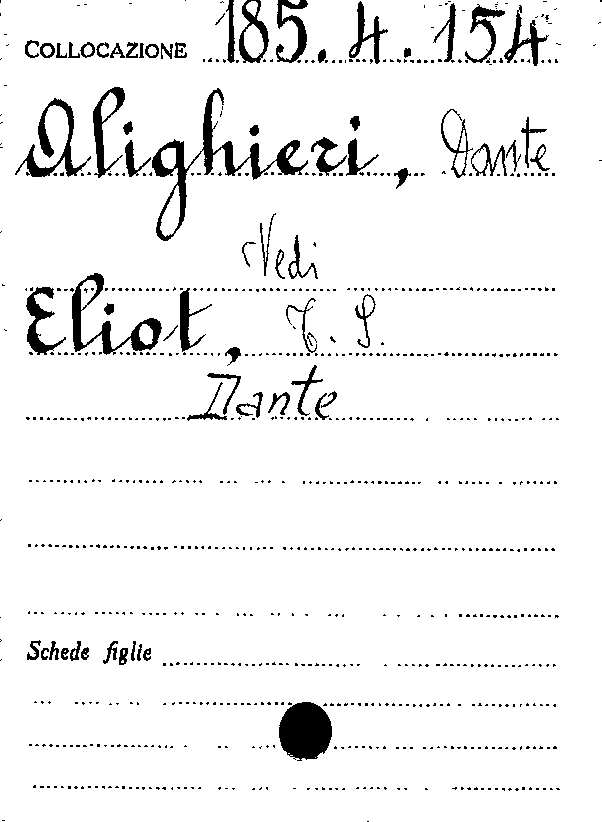 COLLOCAZIONE 185.4.154
Alighieri, Dante
Vedi
Eliot, T. S.
Dante
Schede figlie